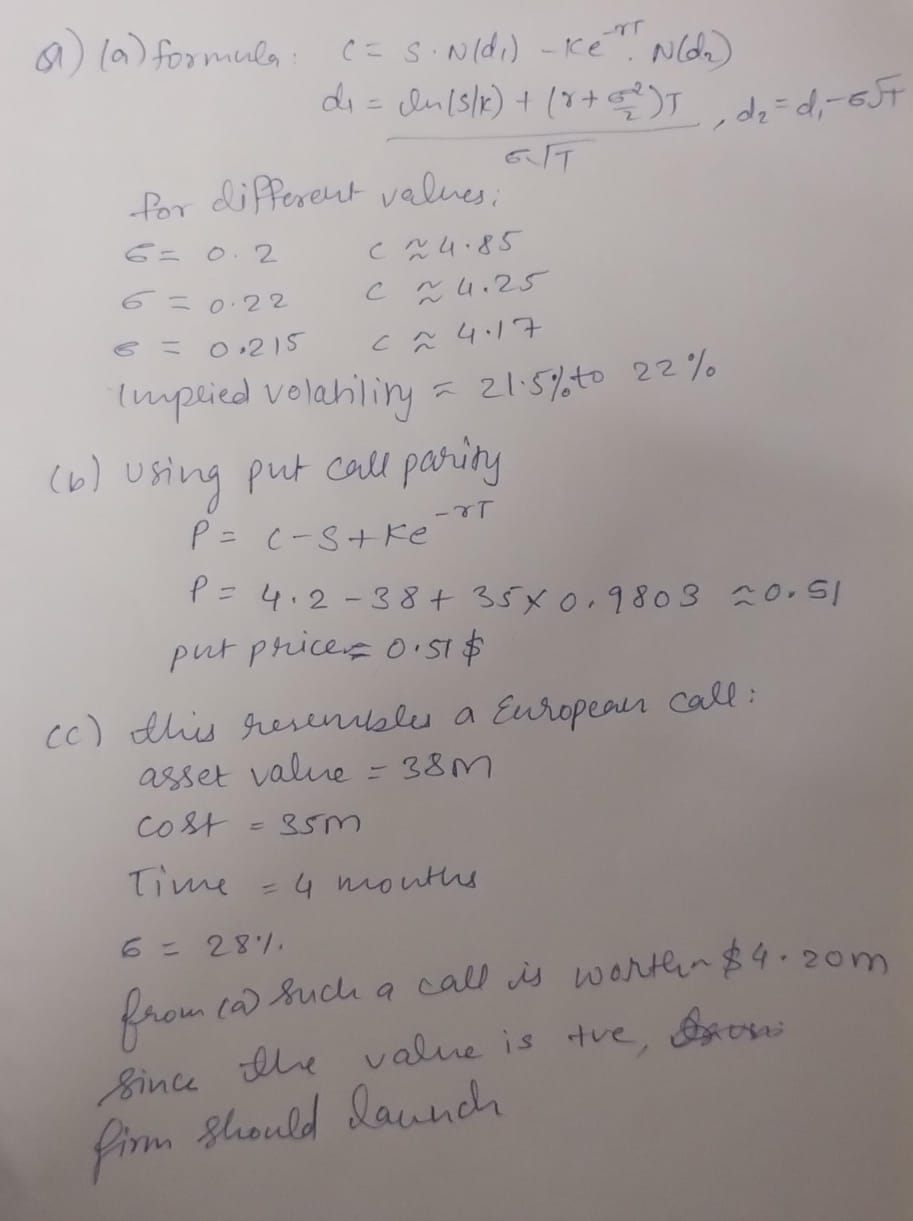 Q) (a) formula: C = S·N(d₁) - Ke^-rT. N(d₂)
d₁ = ln(S/K) + (r + σ²/2)T / σ√T, d₂ = d₁ - σ√T
for different values:
σ = 0.2 C ≈ 4.85
σ = 0.22 C ≈ 4.25
σ = 0.215 C ≈ 4.17
Implied volatility = 21.5% to 22%
(b) using put call parity
P = C - S + Ke^-rT
P = 4.2 - 38 + 35 × 0.9803 ≈ 0.51
put price = 0.51 $
(c) this resembles a European call:
asset value = 38M
cost = 35m
Time = 4 months
σ = 28%.
from (a) such a call is worth $4.20m
since the value is +ve,
firm should launch